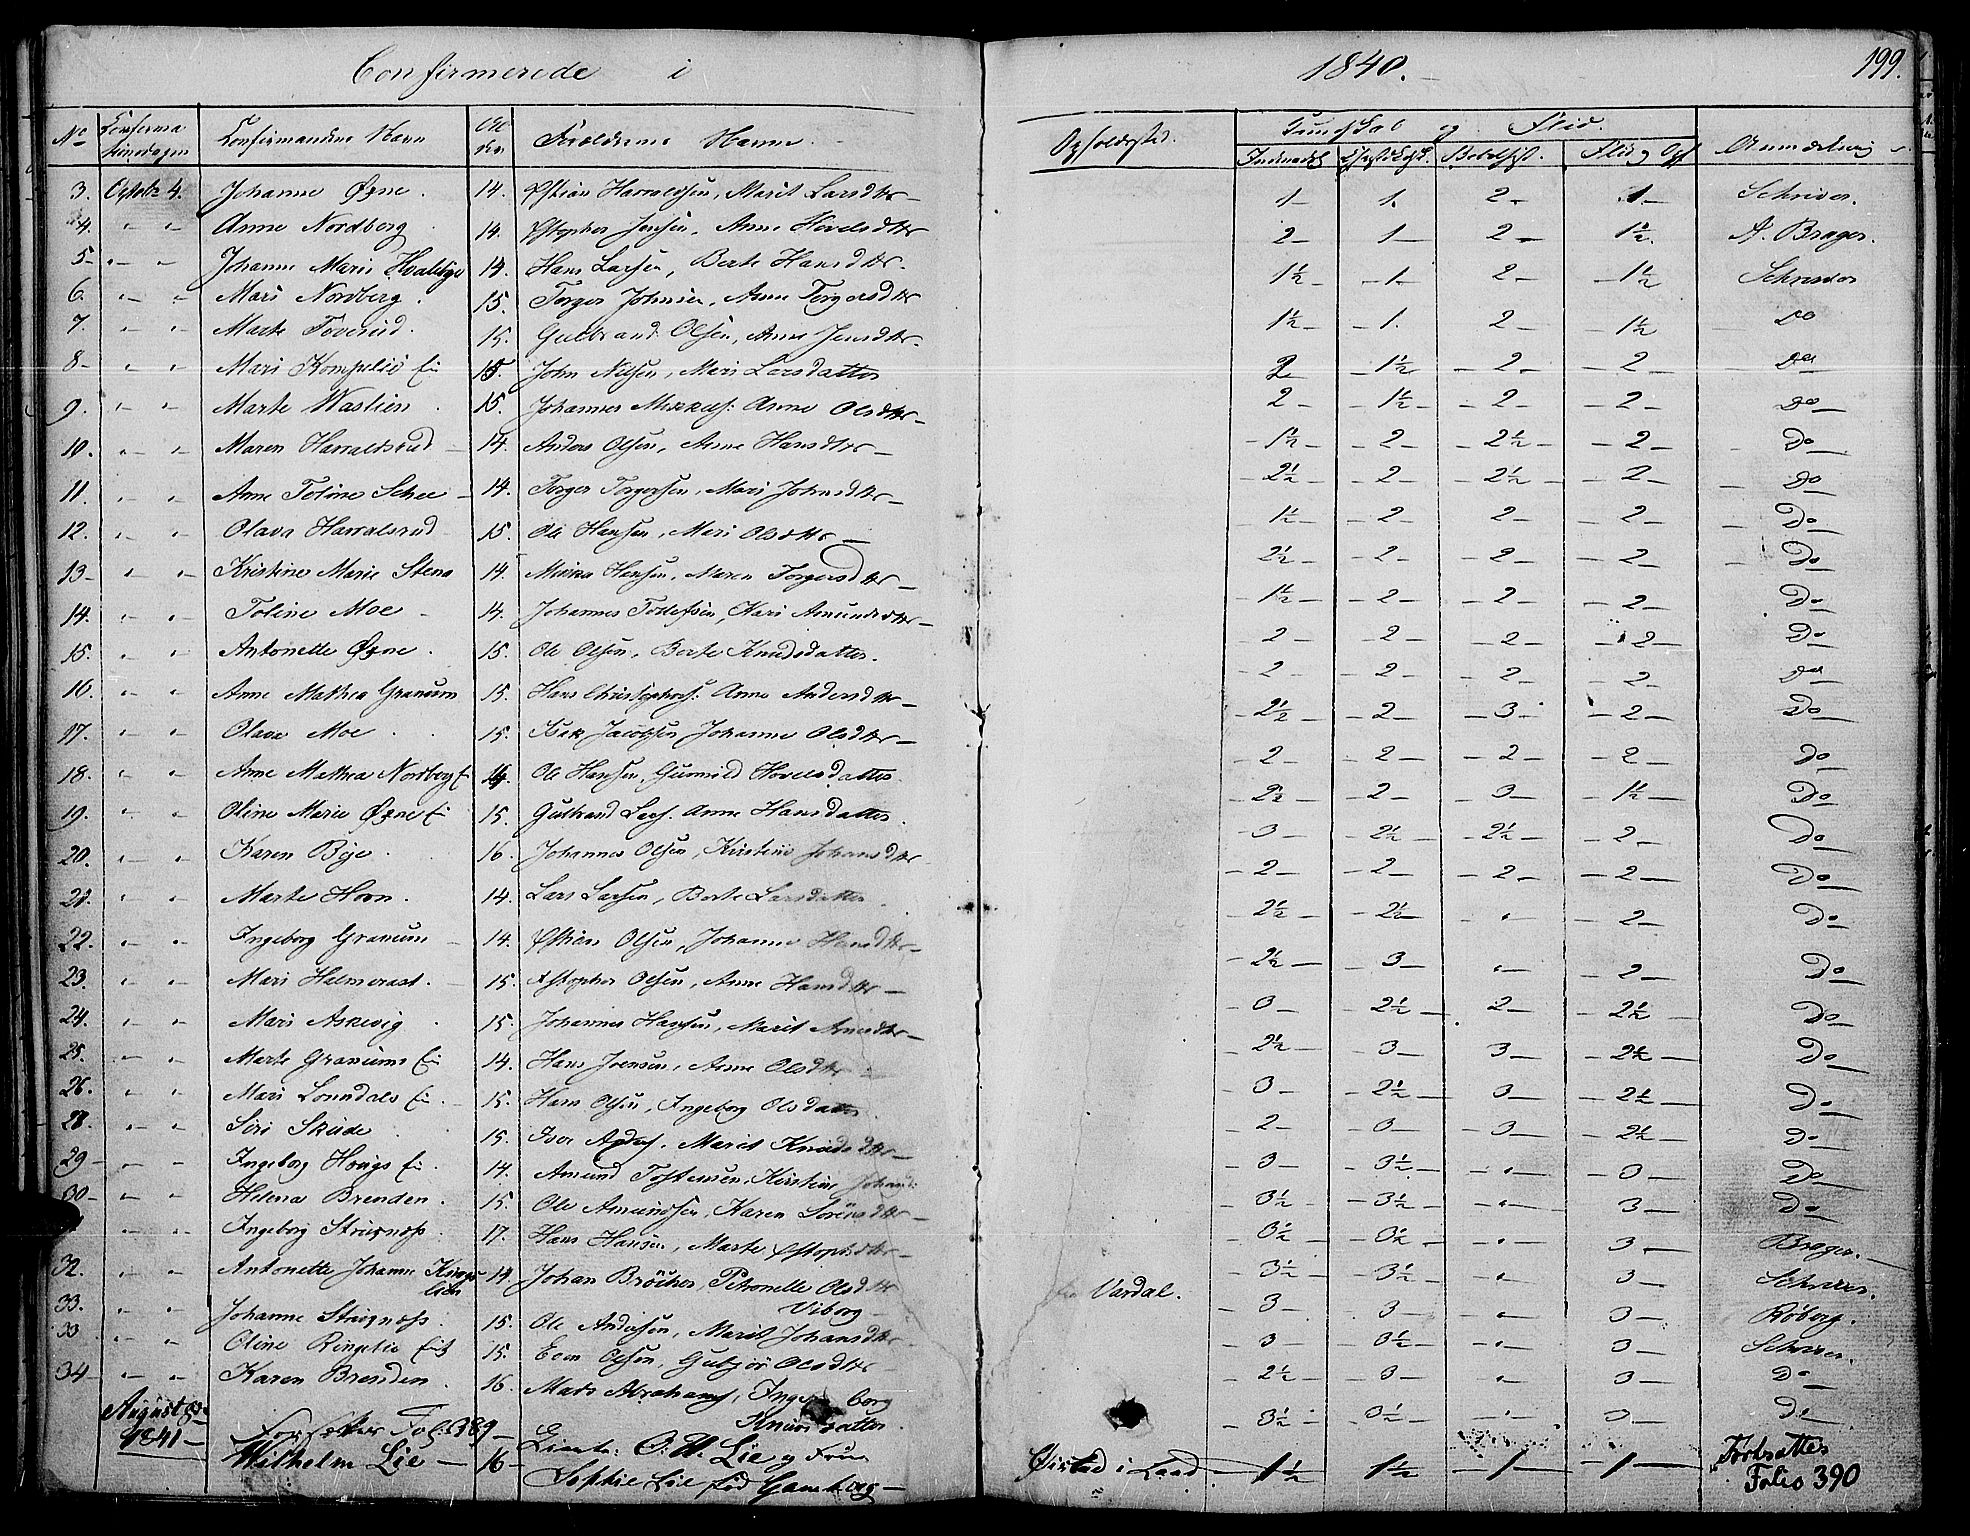 Confirmerede i 1840. 199.
No Confirma tionsdagen Confirmandens Navn Al der Forældrenes Navne Opholdssted. Kundskab og Flid. Anmærkning
3. Octobr 4. Johanne Øxne. 14. Christian Harraldsen, Marit Larsdttr 1 1. 2 1 Schriver.
4. " " Anne Nordberg 14. Christopher Jensen, Anne Hovelsdttr 2 1 2 1½ A. Brager.
5 " " Johanne Marie Hvalebye 14. Hans Larsen, Berte Hansdttr. 1½ 1 2 1½ Schriver
6. " " Mari Nordberg. 15. Torger Johnsen, Anne Torgersdttr 1½ 1. 2 1½ Do
7. " " Marte Toverud. 15. Gulbrand Olsen, Anne Jensdttr. 2 1½ 2 2 Do
8 " " Mari Kompelie Ei 15 John Nilsen, Mari Larsdatter 2 1½ 2 2 Do
9. " " Marte Waslien 15. Johannes Mikkels: Anne Olsdttr 1½ 2 2½ 2 Do
10. " " Maren Harraldsrud 14. Anders Olsen, Anne Hansdttr 2½ 2 2½ 2 Do
11. " " Anne Toline Schee 14. Torger Torgersen, Mari Johnsdttr 1½ 2 2 2 Do
12. " " Olava Harralsrud 15. Ole Hansen, Mari Olsdttr 2½ 2 2 2 Do
13 " " Kristine Marie Stena 14. Hansen, Maren Torgersdttr 1½ 2 2 2 Do
14. " " Toline Moe 14. Johannes Tollefsen, Kari Amundsdttr 2 2 2 2 Do
15. " " Antonette Øxne. 15. Ole Olsen, Berte Knudsdatter. 2 2 2 2 Do
16 " " Anne Mathea Granum 15. Hans Christophers: Anne Andersdttr 2½ 2 3 2 Do
17. " " Olave Moe 15. Isak Jacobsen Johanne Olsdttr 2 2 2 2 Do
18. " " Anne Mathea Nordberg Ei Ole Hansen, Gunnild Hovelsdatter 2½ 2 3 1½ Do
19. " " Oline Marie Øxne Ei 15. Gulbrand Lars. Anne Hansdatter. 3 2½ 2½ 2 Do
20. " " Karen Bye. 16. Johannes Olsen, Kirstine Johansdttr 2 2 2 2 Do
21. " " Marte Horn. 14. Lars Larsen, Berte Larsdatter. 2½ 2½ " 2 Do
22. " " Ingeborg Granum 14. Christian Olsen, Johanne Hansdttr 2½ 3 " 2 Do
23. " " Mari Helmerast. 15. Christopher Olsen, Anne Hansdttr 3 2½ 2 2½ Do
24. " " Mari Askevig 15. Johannes Hansen, Marit Arnesdttr 2½ 3 3 2½ Do
25. " " Marte Granums Ei 14. Hans Joensen, Anne Olsdttr 3 2½ 3 2½ Do
26. " " Mari Lonndals Ei. 15. Hans Olsen, Ingeborg Olsdatter 2 3 3 2½ Do
28. " " Siri Skude. 15. Iver Marit Knudsdttr 3 3½ " 3 Do
29 " " Ingeborg Hovigs Ei. 14. Amund Tostensen, Kirstine Johansd: 3½ 3½ " 3 Do
30 " " Helena Brenden. 15. Ole Amundsen, Karen Sörensdttr 3½ 3½ " 3 Brager.
" " Ingeborg Strugnæss. 17. Hans Hansen, Marte Christophdttr 3½ 3½ " 3 Schriver.
32. " " Antonette Johanne Kings lien 14. Johan Bröcher, Petronelle Olsdttr Viborg fra Vardal. 3 3 " 3 Röberg.
33. " " Johanne Strugnæss. 15. Ole Andersen, Marit Johansdttr 3 3½ " 3 Schriver.
33 " " Oline Ringelie Eie 15. Even Olsen, Gubjör Olsdttr 2½ 3 " 3 Do
34 " " Karen Brenden. 16. Mats Abrahams, Ingeborg Knudsdatter 3½ 3½ " 3 Do
Forsætter Fol: 389
August 1841 Wilhelm Lie 16 Lieutn: O. H. Lie og Frue Sophie Lie föd Gamborg Öistad i Land 1½ 1½ 1 1 Fortsættes Folio 390